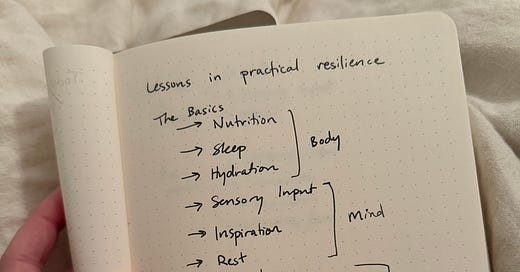 Lessons in practical resilience
The Basics
→ Nutrition
→ Sleep
→ Hydration
Body
→ Sensory Input
→ Inspiration
→ Rest
Mind